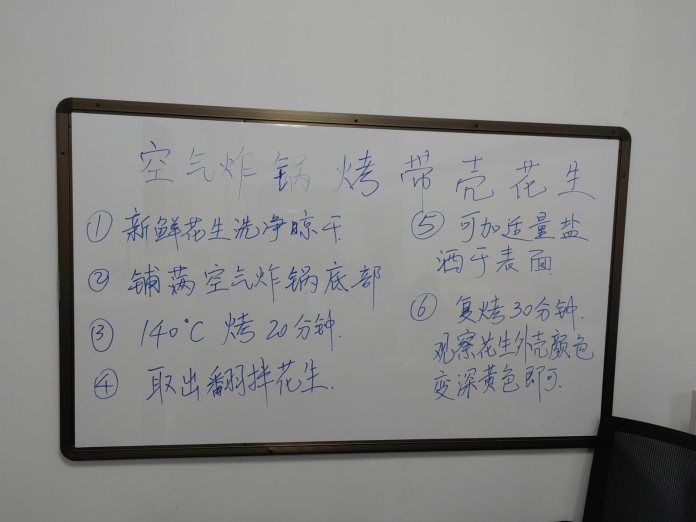 空气炸锅烤带壳花生
① 新鲜花生洗净晾干
② 铺满空气炸锅底部
③ 140°C 烤20分钟.
④ 取出翻拌花生.
⑤ 可加适量盐
洒于表面
⑥ 复烤30分钟.
观察花生外壳颜色
变深黄色即可.